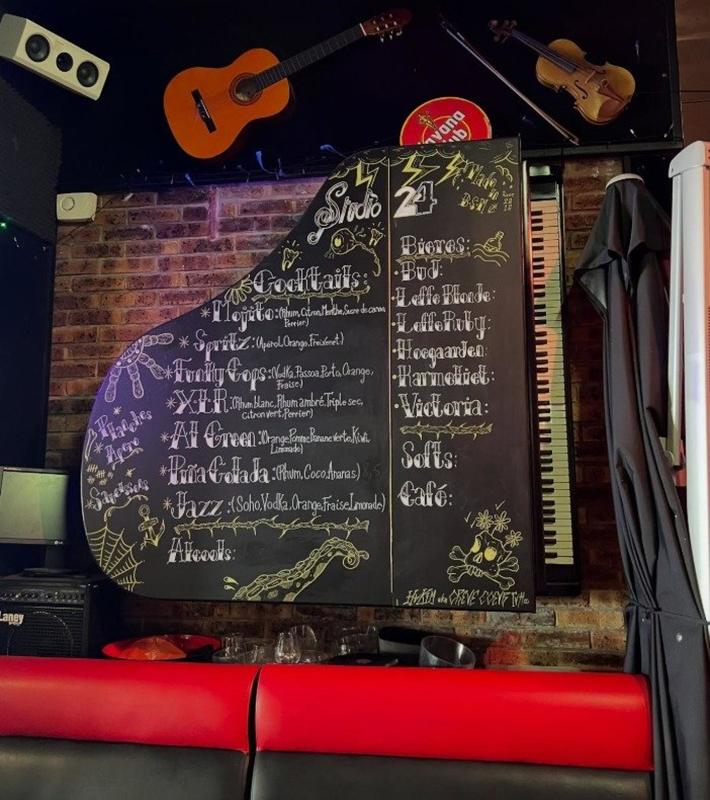 Havana
Club
Studio 24
Made in
Cocktails:
* Mojito: (Rhum, Citron, Menthe, Sucre de canne,
Perrier)
* Spritz: (Apérol, Orange, Freixenet)
* Funky Cops: (Vodka, Passoa, Porto, Orange,
Fraise)
* XLR: (Rhum blanc, Rhum ambré, Triple sec,
Citron vert, Perrier)
* Al Green: (Orange, Pomme, Banane verte, Kiwi,
Limonade)
* Piña Colada: (Rhum, Coco, Ananas)
* Jazz: (Soho, Vodka, Orange, Fraise, Limonade)
Alcools:
Planches
Apéro
Bieres:
• Bud:
• Leffe Blonde:
• Leffe Ruby:
• Hoegaarden:
• Karmeliet:
• Victoria:
Softs:
Café:
Laney